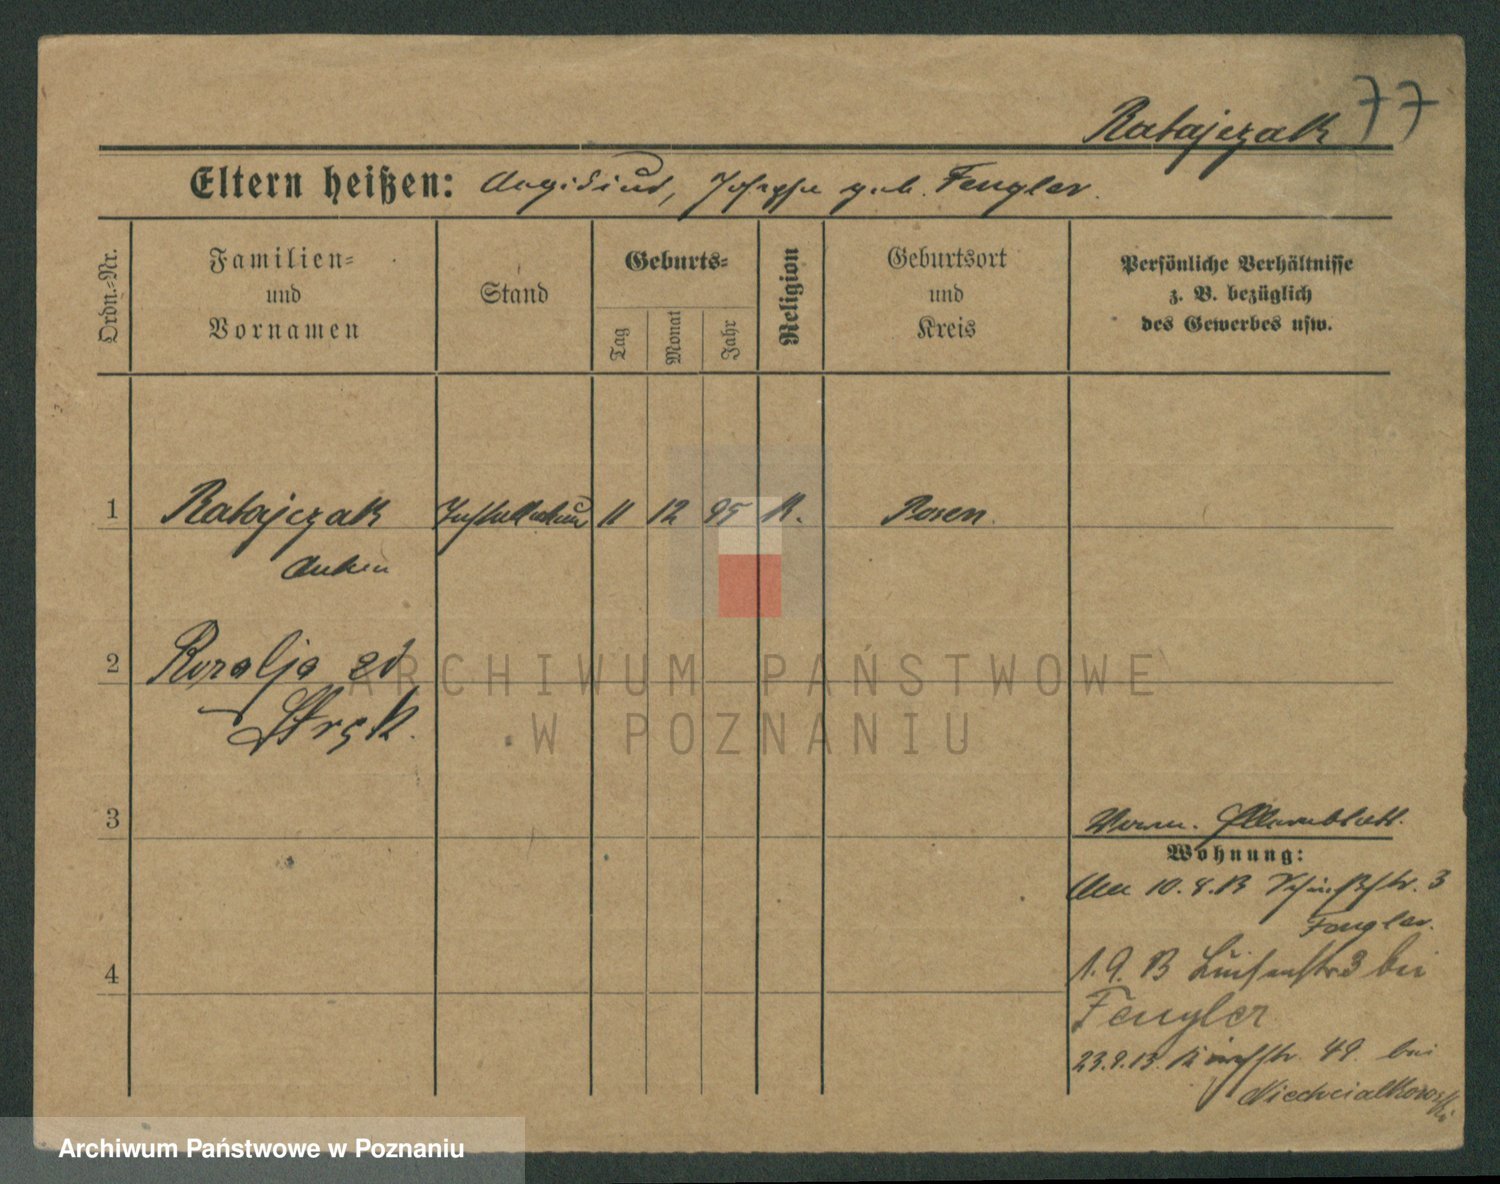 Ratajczak 77
Eltern heißen: Aegidius, Josepha geb. Fengler.
Ordn.-Nr.
Familien-
und
Vornamen
Stand
Geburts-
Tag
Monat
Jahr
Religion
Geburtsort
und
Kreis
Persönliche Verhältnisse
z. B. bezüglich
des Gewerbes usw.
1 Ratajczak 11 12 95 K. Posen.
Anton
2 Rozalja zd
3
Wohnung:
10.8.13 3
Fengler.
1.9.13 Luisenstr. 3 bei
4
Fengler
23.9.13. Kirchstr. 49. bei
Niedzialkowski
ARCHIWUM PAŃSTWOWE
W POZNANIU
Archiwum Państwowe w Poznaniu